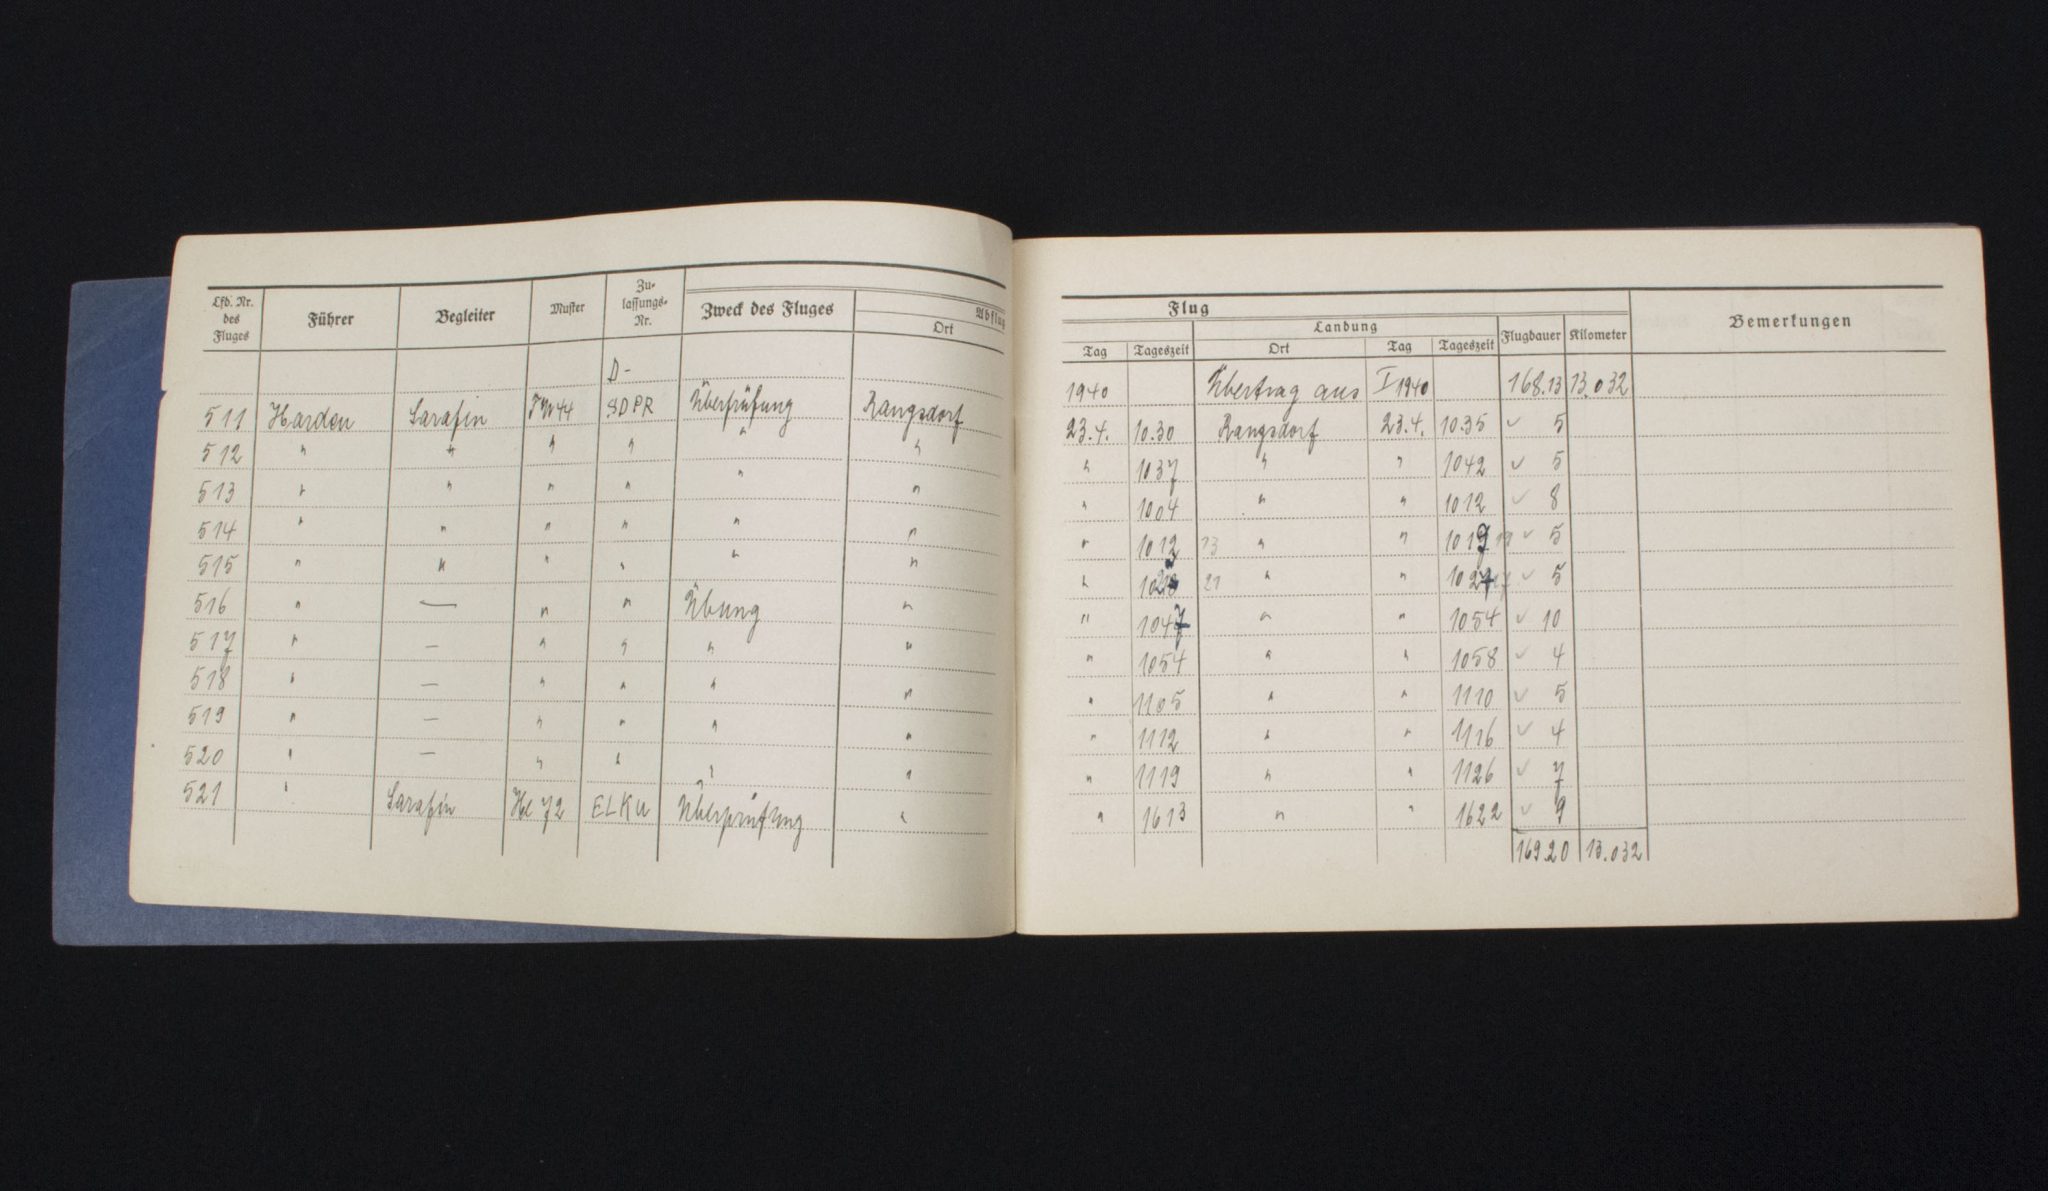 Lfd. Nr. des Fluges Führer Begleiter Muster Zu- lassungs- Nr. Zweck des Fluges Abflug Ort
D-
511 Harden Sarafin FW44 SDPR Überprüfung Rangsdorf
512 " " " " " "
513 " " " " " "
514 " " " " " "
515 " " " " " "
516 " — " " Übung "
517 " — " " " "
518 " — " " " "
519 " — " " " "
520 " — " " " "
521 " Sarafin He 72 ELKU Überprüfung "
Flug
Tag Tageszeit Landung Ort Tag Tageszeit Flugdauer Kilometer Bemerkungen
1940 Übertrag aus I 1940 168.13 13.032
23.4. 10.30 Rangsdorf 23.4. 1035 ✓ 5
" 1037 " " 1042 ✓ 5
" 1004 " " 1012 ✓ 8
" 1012 13 " " 1019 ✓ 5
" 21 " " 1027 ✓ 5
" 1047 " " 1054 ✓ 10
" 1054 " " 1058 ✓ 4
" 1105 " " 1110 ✓ 5
" 1112 " " 1116 ✓ 4
" 1119 " " 1126 ✓ 7
" 1613 " " 1622 ✓ 9
169.20 13.032